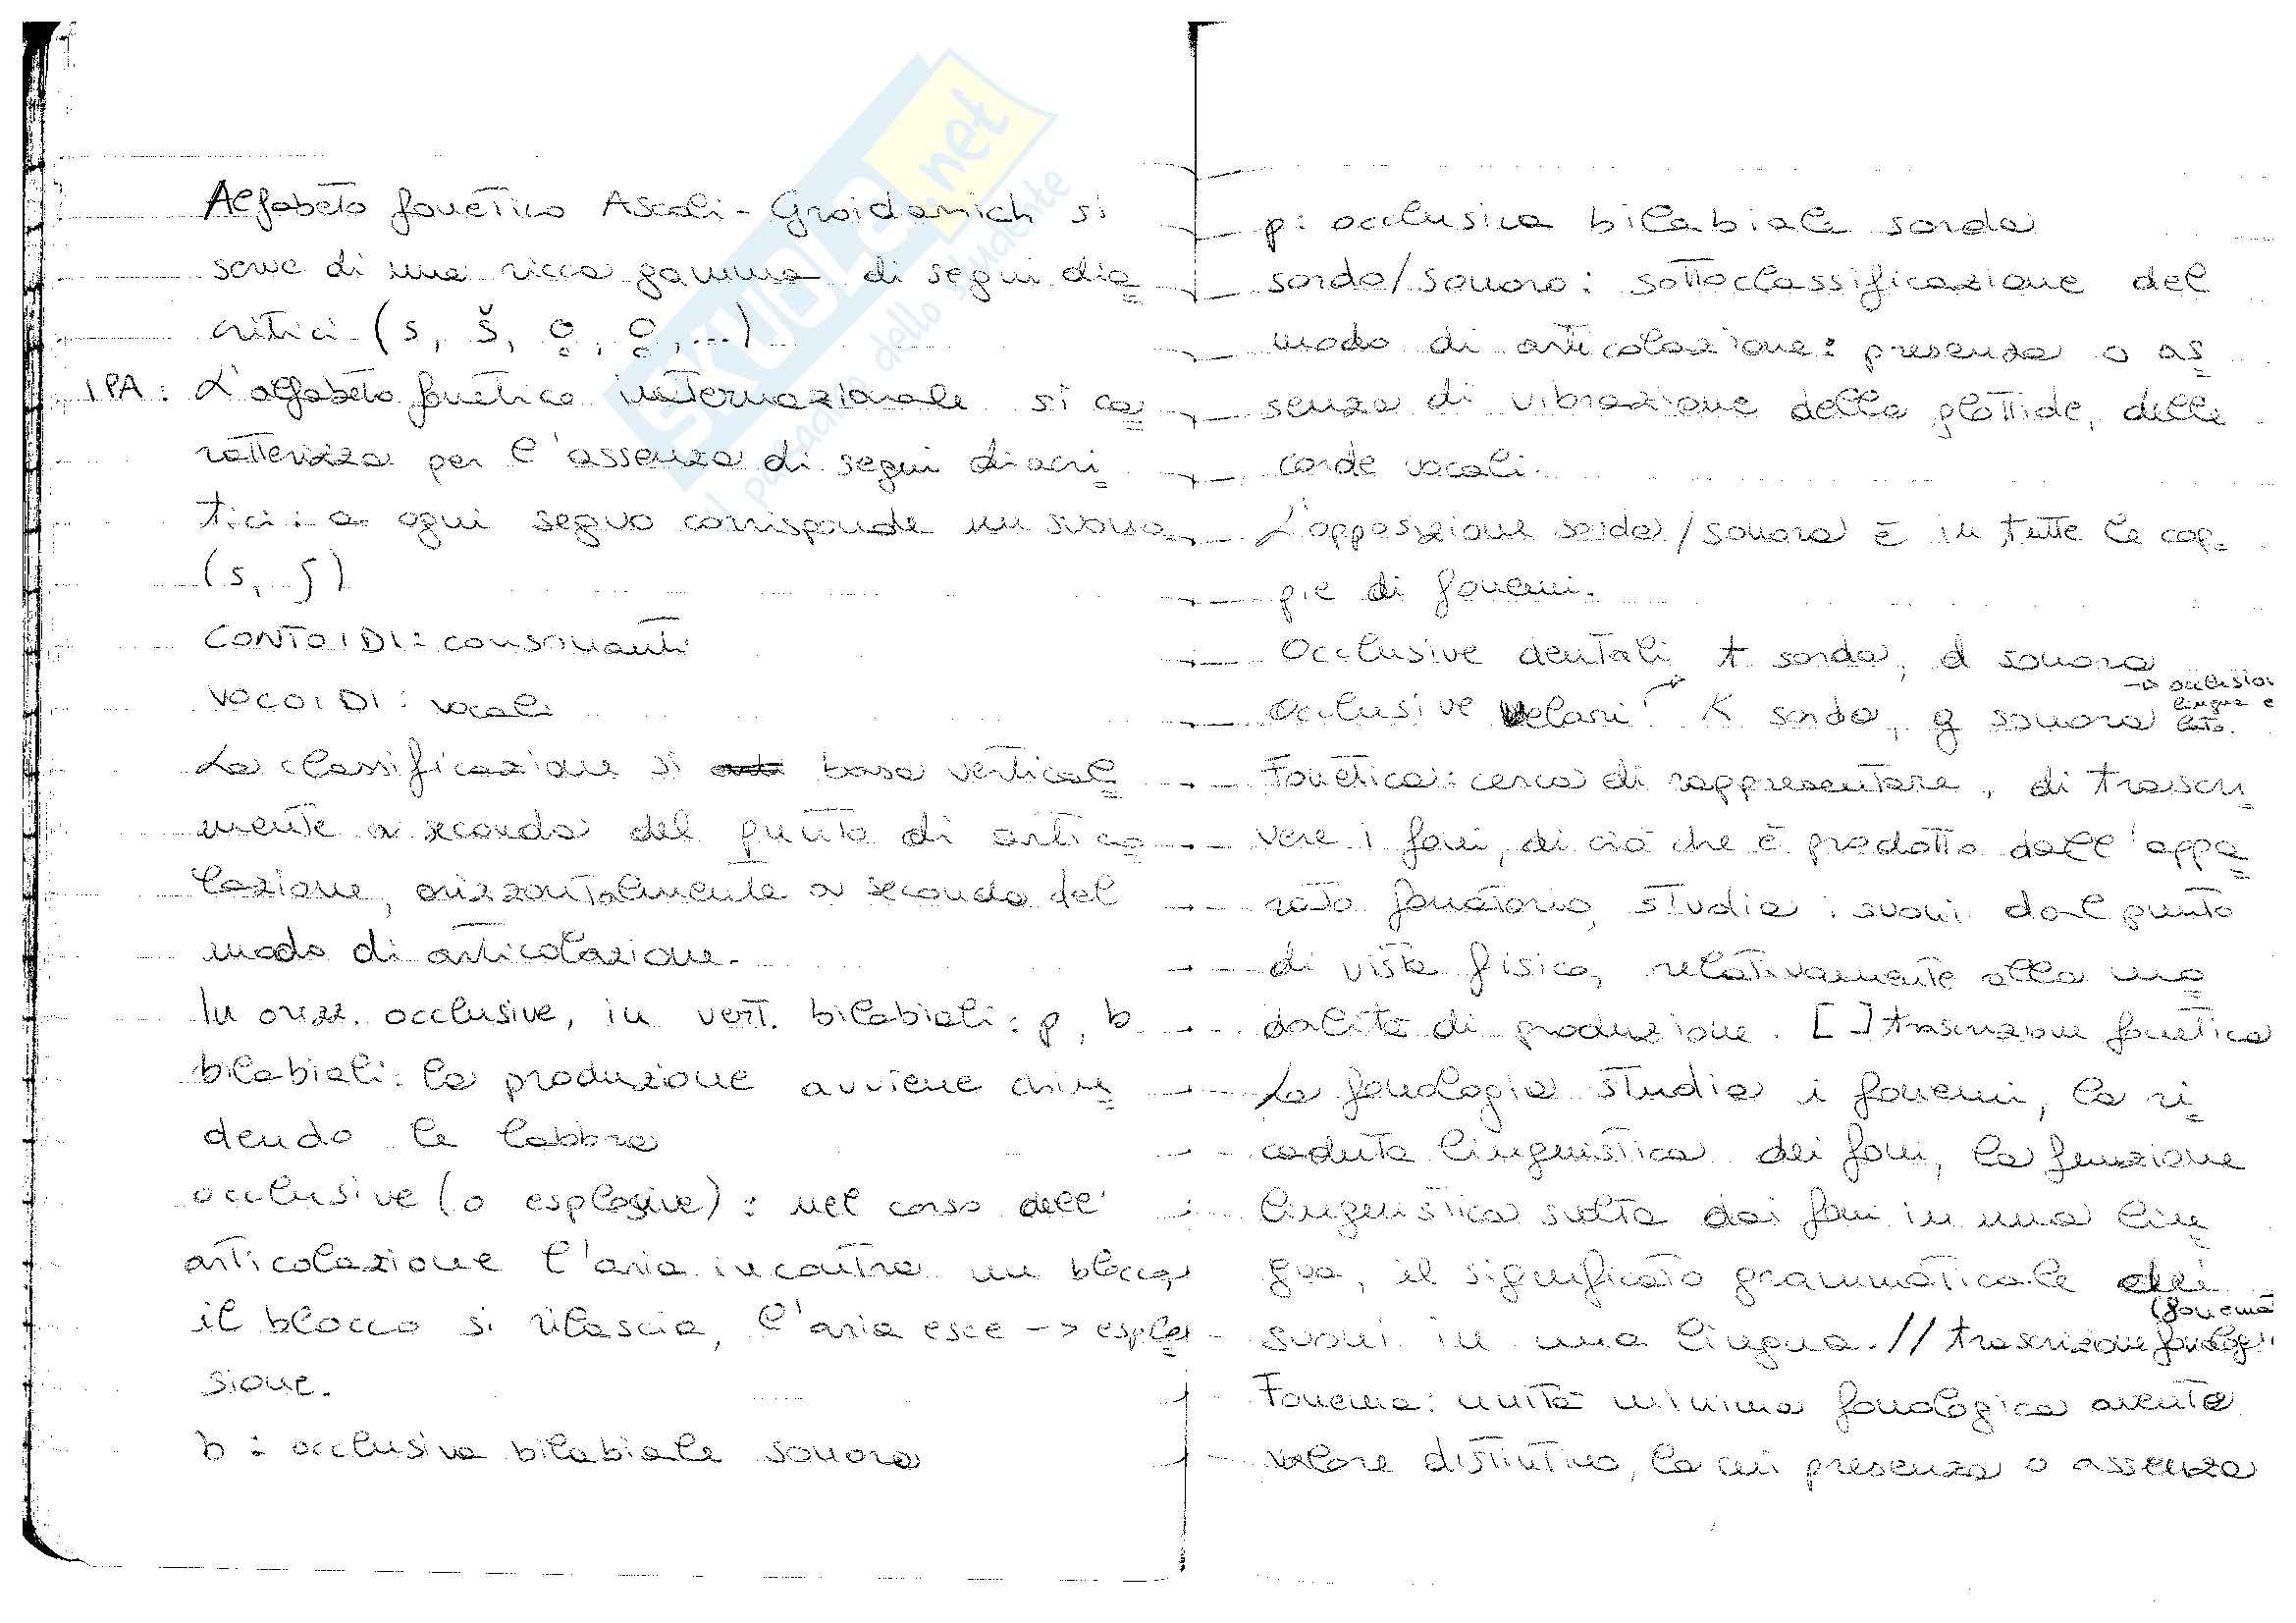 Alfabeto fonetico Ascoli-Groidanich si
serve di una ricca gamma di segni dia=
critici (s, š, o̥, o̥, ...)
IPA: L'alfabeto fonetico internazionale si ca=
ratterizza per l'assenza di segni diacri=
tici: a ogni segno corrisponde un suono
(s, ʃ)
CONTOIDI: consonanti
VOCOIDI: vocali
La classificazione si basa vertical=
mente a seconda del punto di artico=
lazione, orizzontalmente a seconda del
modo di articolazione.
In orizz. occlusive, in vert. bilabiali: p, b
bilabiali: la produzione avviene chiu=
dendo le labbra
occlusive (o esplosive): nel corso dell'
articolazione l'aria incontra un blocco,
il blocco si rilascia, l'aria esce -> esplo=
sione.
b: occlusiva bilabiale sonora
p: occlusiva bilabiale sorda
sordo/sonoro: sottoclassificazione del
modo di articolazione: presenza o as=
senza di vibrazione della glottide, delle
corde vocali.
L'opposizione sorda/sonora è in tutte le cop=
pie di fonemi.
Occlusive dentali t sorda, d sonora
Occlusive velari K sorda, g sonora
-> occlusion
lingua e
Fonetica: cerca di rappresentare, di trascri=
vere i foni, di ciò che è prodotto dall'appa=
rato fonatorio, studia i suoni dal punto
di vista fisico, relativamente alla mo=
dalità di produzione. [ ] trascrizione fonetica
La fonologia studia i fonemi, la ri=
caduta linguistica dei foni, la funzione
linguistica svolta dai foni in una lin=
gua, il significato grammaticale dei
suoni in una lingua. // trascrizione fonolog
(fonema
Fonema: unità minima fonologica avente
valore distintivo, la cui presenza o assenza
SKUOLA.net
il paradiso dello studente